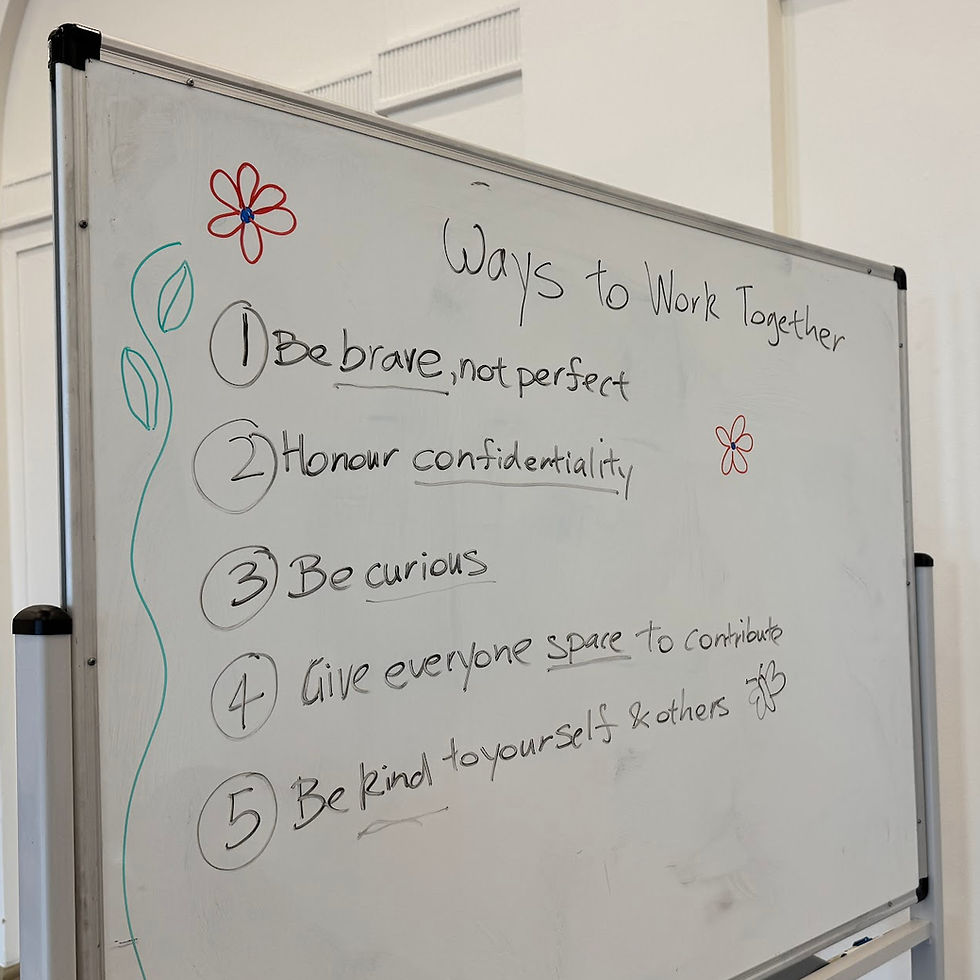 Ways to Work Together
1 Be brave, not perfect
2 Honour confidentiality
3 Be curious
4 Give everyone space to contribute
5 Be kind to yourself & others